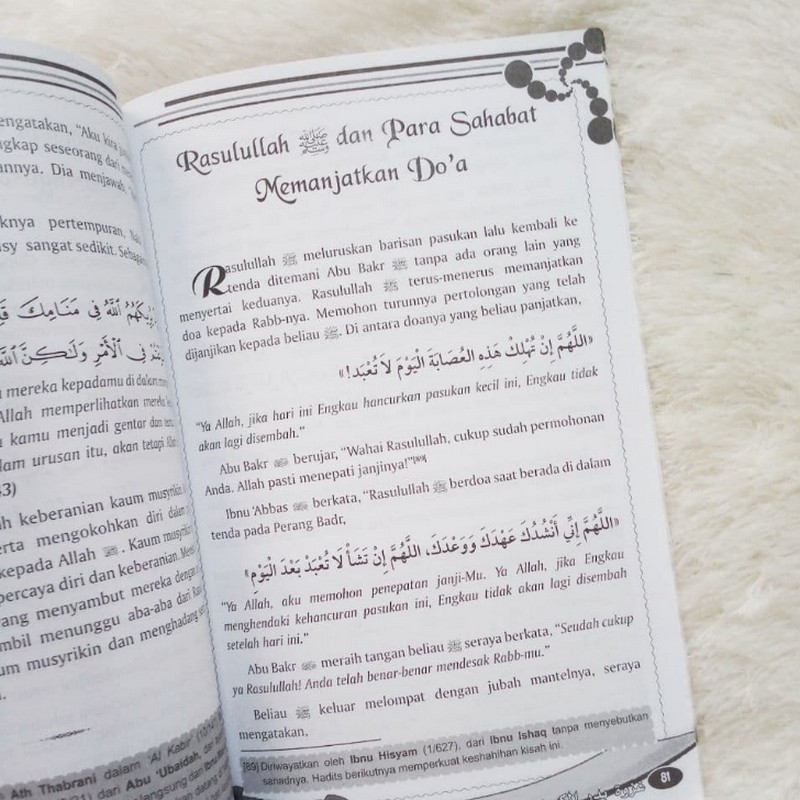 engatakan, "Aku kira
ngkap seseorang dari
annya. Dia menjawab,
knya pertempuran,
sy sangat sedikit.
ٱللَّهُ فِى مَنَامِكَ
فِى ٱلْأَمْرِ وَلَٰكِنَّ ٱللَّهَ
mereka kepadamu di dalam
Allah memperlihatkan mereka
kamu menjadi gentar dan
lam urusan itu, akan tetapi
43)
h keberanian kaum musyrikin
erta mengokohkan diri dalam
kepada Allah ﷻ. Kaum
percaya diri dan keberanian.
yang menyambut mereka dengan
mbil menunggu aba-aba dari
um musyrikin dan menghadang
Ath Thabrani dalam 'Al Kabir'
dari Abu 'Ubaidah,
Rasulullah ﷺ dan Para Sahabat
Memanjatkan Do'a
Rasulullah ﷺ meluruskan barisan pasukan lalu kembali ke
tenda ditemani Abu Bakr tanpa ada orang lain yang
menyertai keduanya. Rasulullah ﷺ terus-menerus memanjatkan
doa kepada Rabb-nya. Memohon turunnya pertolongan yang telah
dijanjikan kepada beliau ﷺ. Di antara doanya yang beliau panjatkan,
«اللَّهُمَّ إِنْ تُهْلِكْ هَذِهِ الْعُصَابَةَ الْيَوْمَ لَا تُعْبَدْ!»
"Ya Allah, jika hari ini Engkau hancurkan pasukan kecil ini, Engkau tidak
akan lagi disembah."
Abu Bakr berujar, "Wahai Rasulullah, cukup sudah permohonan
Anda. Allah pasti menepati janjinya!"[89]
Ibnu 'Abbas berkata, "Rasulullah ﷺ berdoa saat berada di dalam
tenda pada Perang Badr,
«اللَّهُمَّ إِنِّي أَنْشُدُكَ عَهْدَكَ وَوَعْدَكَ، اللَّهُمَّ إِنْ تَشَأْ لَا تُعْبَدْ بَعْدَ الْيَوْمِ»
"Ya Allah, aku memohon penepatan janji-Mu. Ya Allah, jika Engkau
menghendaki kehancuran pasukan ini, Engkau tidak akan lagi disembah
setelah hari ini."
Abu Bakr meraih tangan beliau ﷺ seraya berkata, "Seudah cukup
ya Rasulullah! Anda telah benar-benar mendesak Rabb-mu."
Beliau ﷺ keluar melompat dengan jubah mantelnya, seraya
mengatakan,
[89] Diriwayatkan oleh Ibnu Hisyam (1/627), dari Ibnu Ishaq tanpa menyebutkan
sanadnya. Hadits berikutnya memperkuat keshahihan kisah ini.
81